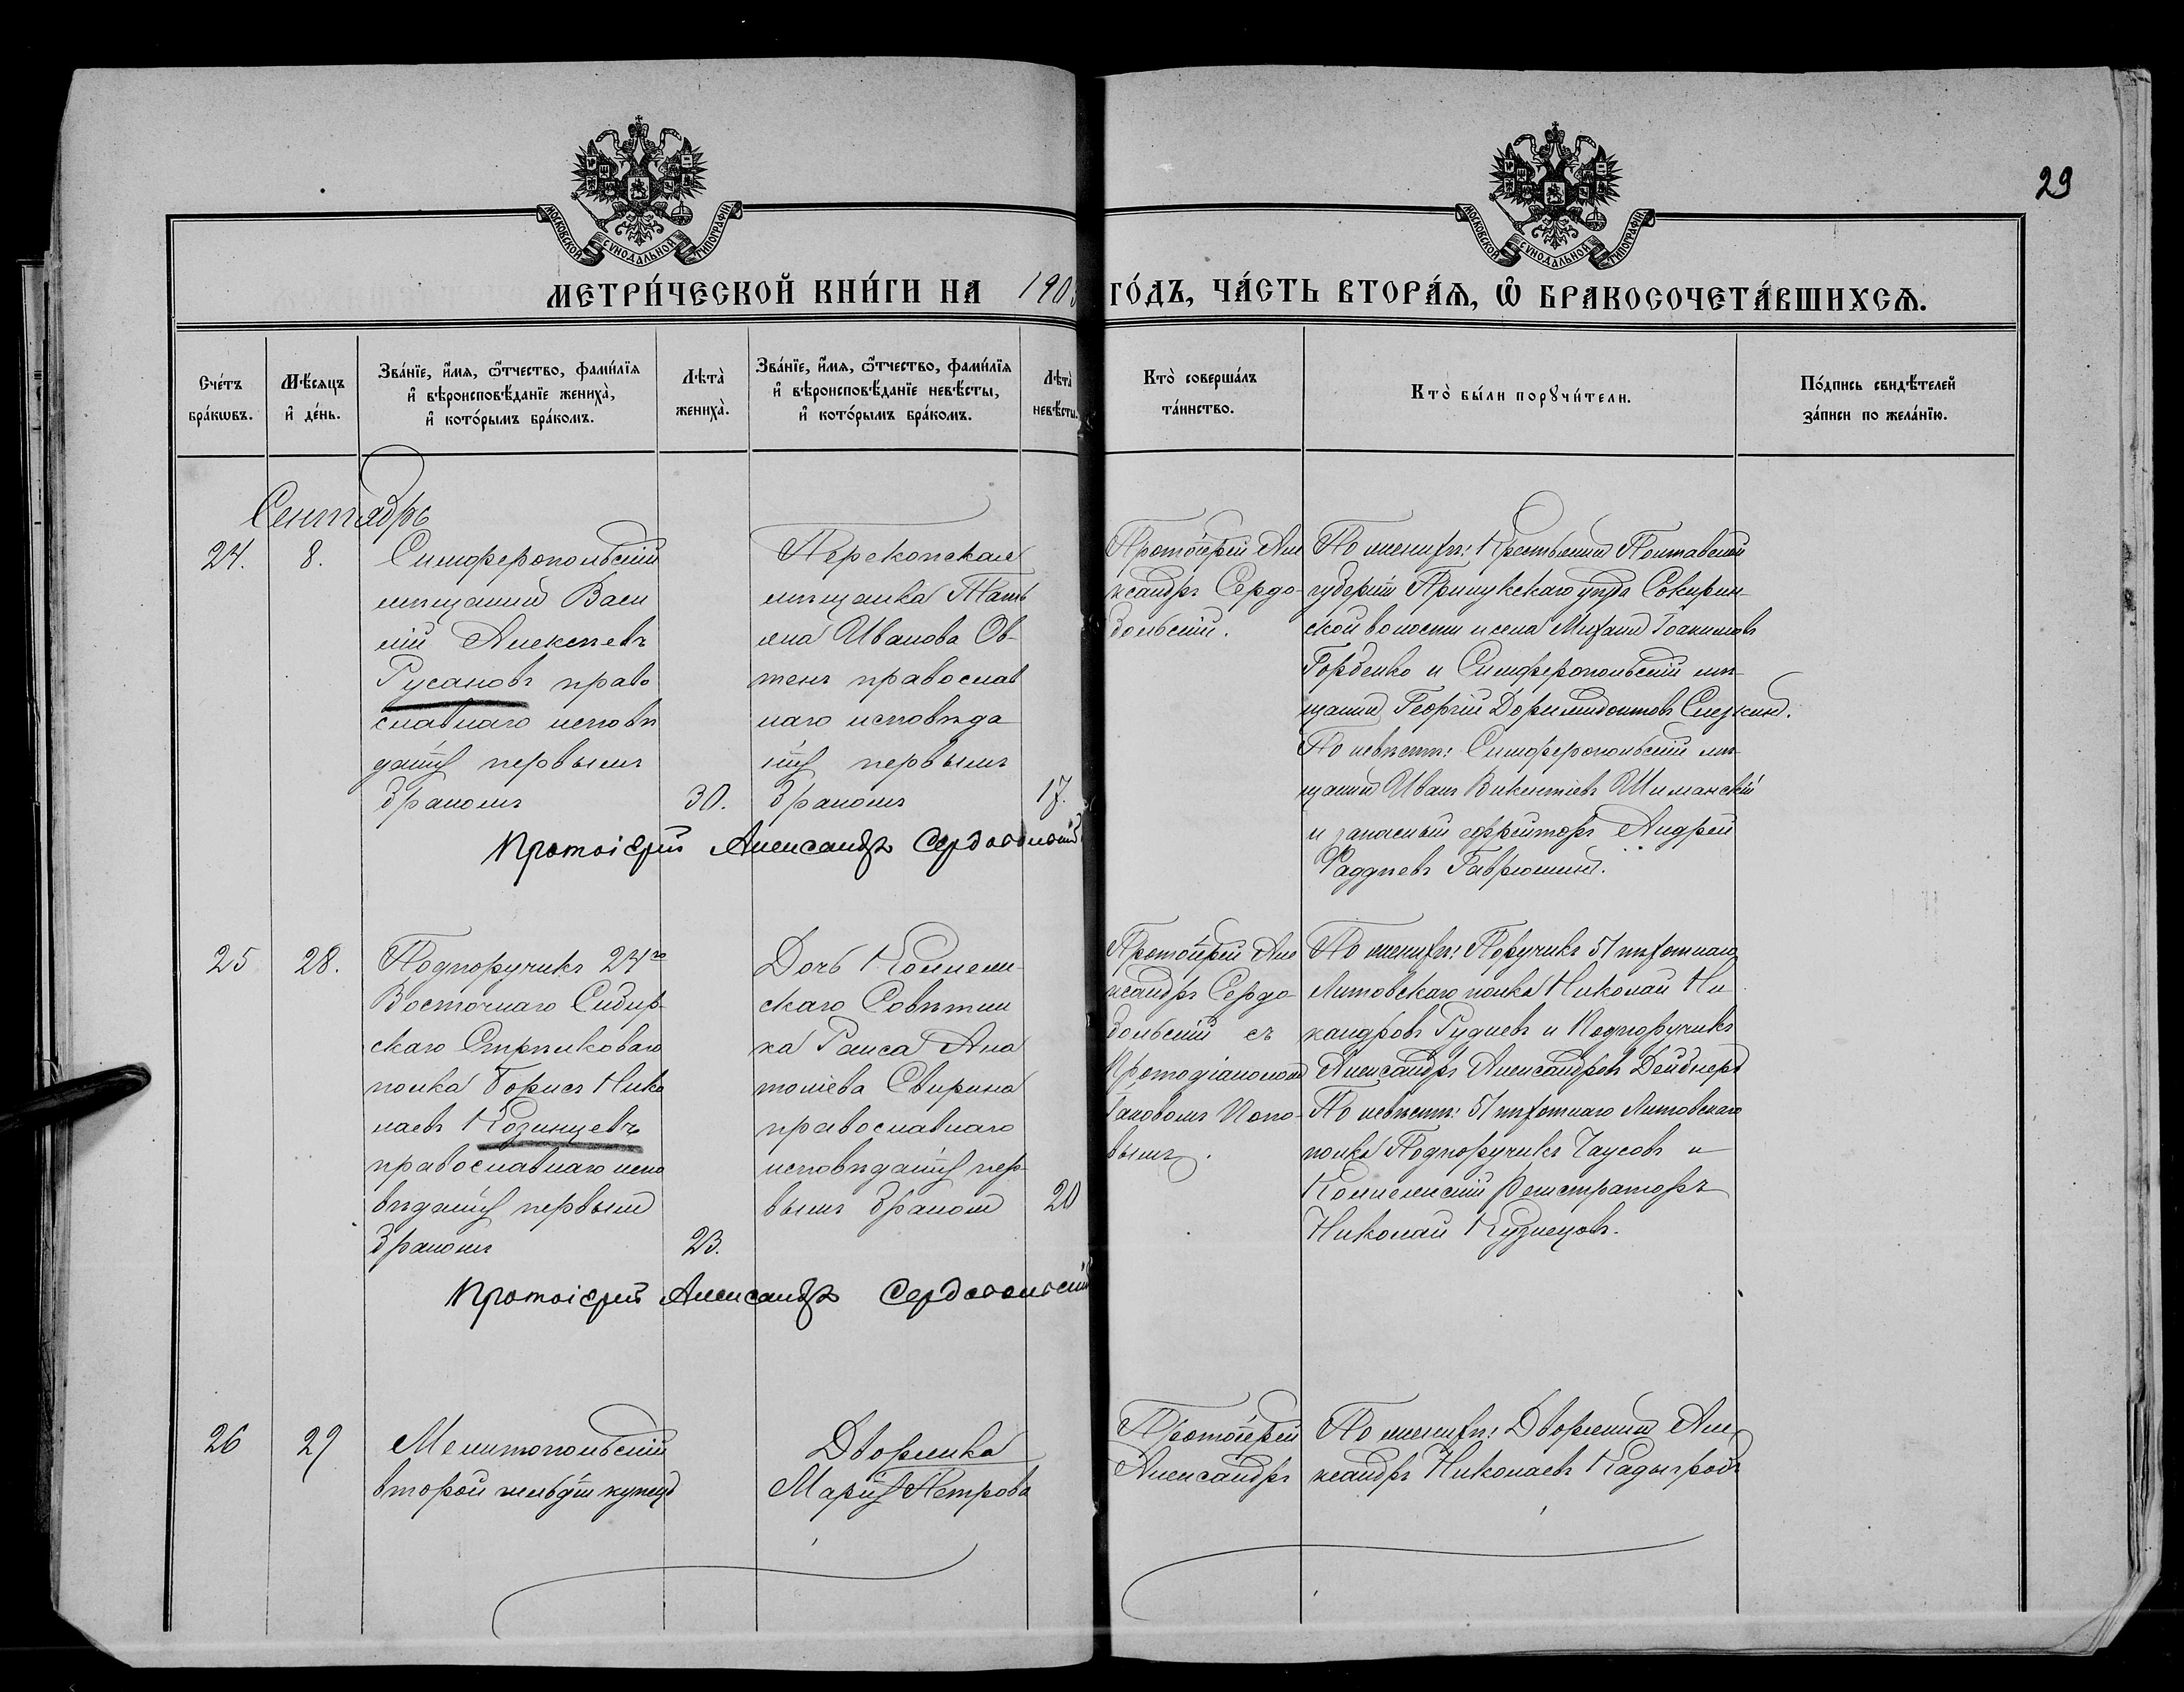 29
МОСКОВСКОЙ СѴНОДАЛЬНОЙ ТИПОГРАФІИ
МОСКОВСКОЙ СѴНОДАЛЬНОЙ ТИПОГРАФІИ
МЕТРИ́ЧЕСКОЙ КНИ́ГИ НА 190
ГО́ДЪ, ЧА́СТЬ ВТОРА́Ѧ, Ѽ БРАКОСОЧЕТА́ВШИХСѦ.
Сче́тъ
бра́кѡвъ.
Мѣ́сѧцъ
и҆ де́нь.
Зва́нїе, и҆́мѧ, ѻ҆́тчество, фами́лїѧ
и҆ вѣроисповѣ́данїе жениха̀,
и҆ кото́рымъ бра́комъ.
Лѣта̀
жениха̀.
Зва́нїе, и҆́мѧ, ѻ҆́тчество, фами́лїѧ
и҆ вѣроисповѣ́данїе невѣ́сты,
и҆ кото́рымъ бра́комъ.
Лѣта̀
невѣ́сты.
Кто̀ соверша́лъ
та́инство.
Кто̀ бы́ли порꙋчи́тели.
По́дпись свидѣ́телей
за́писи по жела́нїю.
Сентябрь
24.
8.
Симферопольскій
мѣщанинъ Васи
лій Алексѣевъ
Русановъ право
славнаго исповѣ
данія первымъ
бракомъ
30.
Перекопская
мѣщанка Тать
яна Иванова Ов
православ
наго исповѣда
нія первымъ
бракомъ
17.
Протоіерей Александръ Сердобольскій
Протоіерей Але
ксандръ Сердо-
больскій.
По женихѣ: Крестьянинъ Полтавской
губерніи Прилукскаго уѣзда Сокирин
ской волости и села Михаилъ Іоакимовъ
Горбенко и Симферопольскій мѣ-
щанинъ Георгій Доримедонтовъ
По невѣстѣ: Симферопольскій мѣ-
щанинъ Иванъ Викентіевъ Шиманскій
и запасный ефрейторъ Андрей
Фаддѣевъ Гаврюшинъ.
25
28.
Подпоручикъ 24го
Восточнаго Сибир-
скаго Стрѣлковаго
полка Борисъ Нико
лаевъ Козинцевъ
православнаго испо
вѣданія первымъ
бракомъ
23.
Дочь Коллеж-
скаго Совѣтни
ка Раиса Ана
толіева Свирина
православнаго
исповѣданія пер-
вымъ бракомъ
20
Протоіерей Александръ Сердобольскій
Протоіерей Але
ксандръ Сердо-
больскій съ
Протодіакономъ
Іаковомъ Попо-
вымъ.
По женихѣ: Поручикъ 51 пѣхотнаго
Литовскаго полка Николай Ни
кандровъ Рудневъ и Подпоручикъ
Александръ Александровъ Дейбнеръ
По невѣстѣ: 51 пѣхотнаго Литовскаго
полка Подпоручикъ Чаусовъ и
Коллежскій Регистраторъ
Николай Кузнецовъ.
26
29
Мелитопольскій
второй гильдіи купецъ
Дворянка
Марія Петрова
Протоіерей
Александръ
По женихѣ: Дворянинъ Але
ксандръ Николаевъ Кадыгробъ